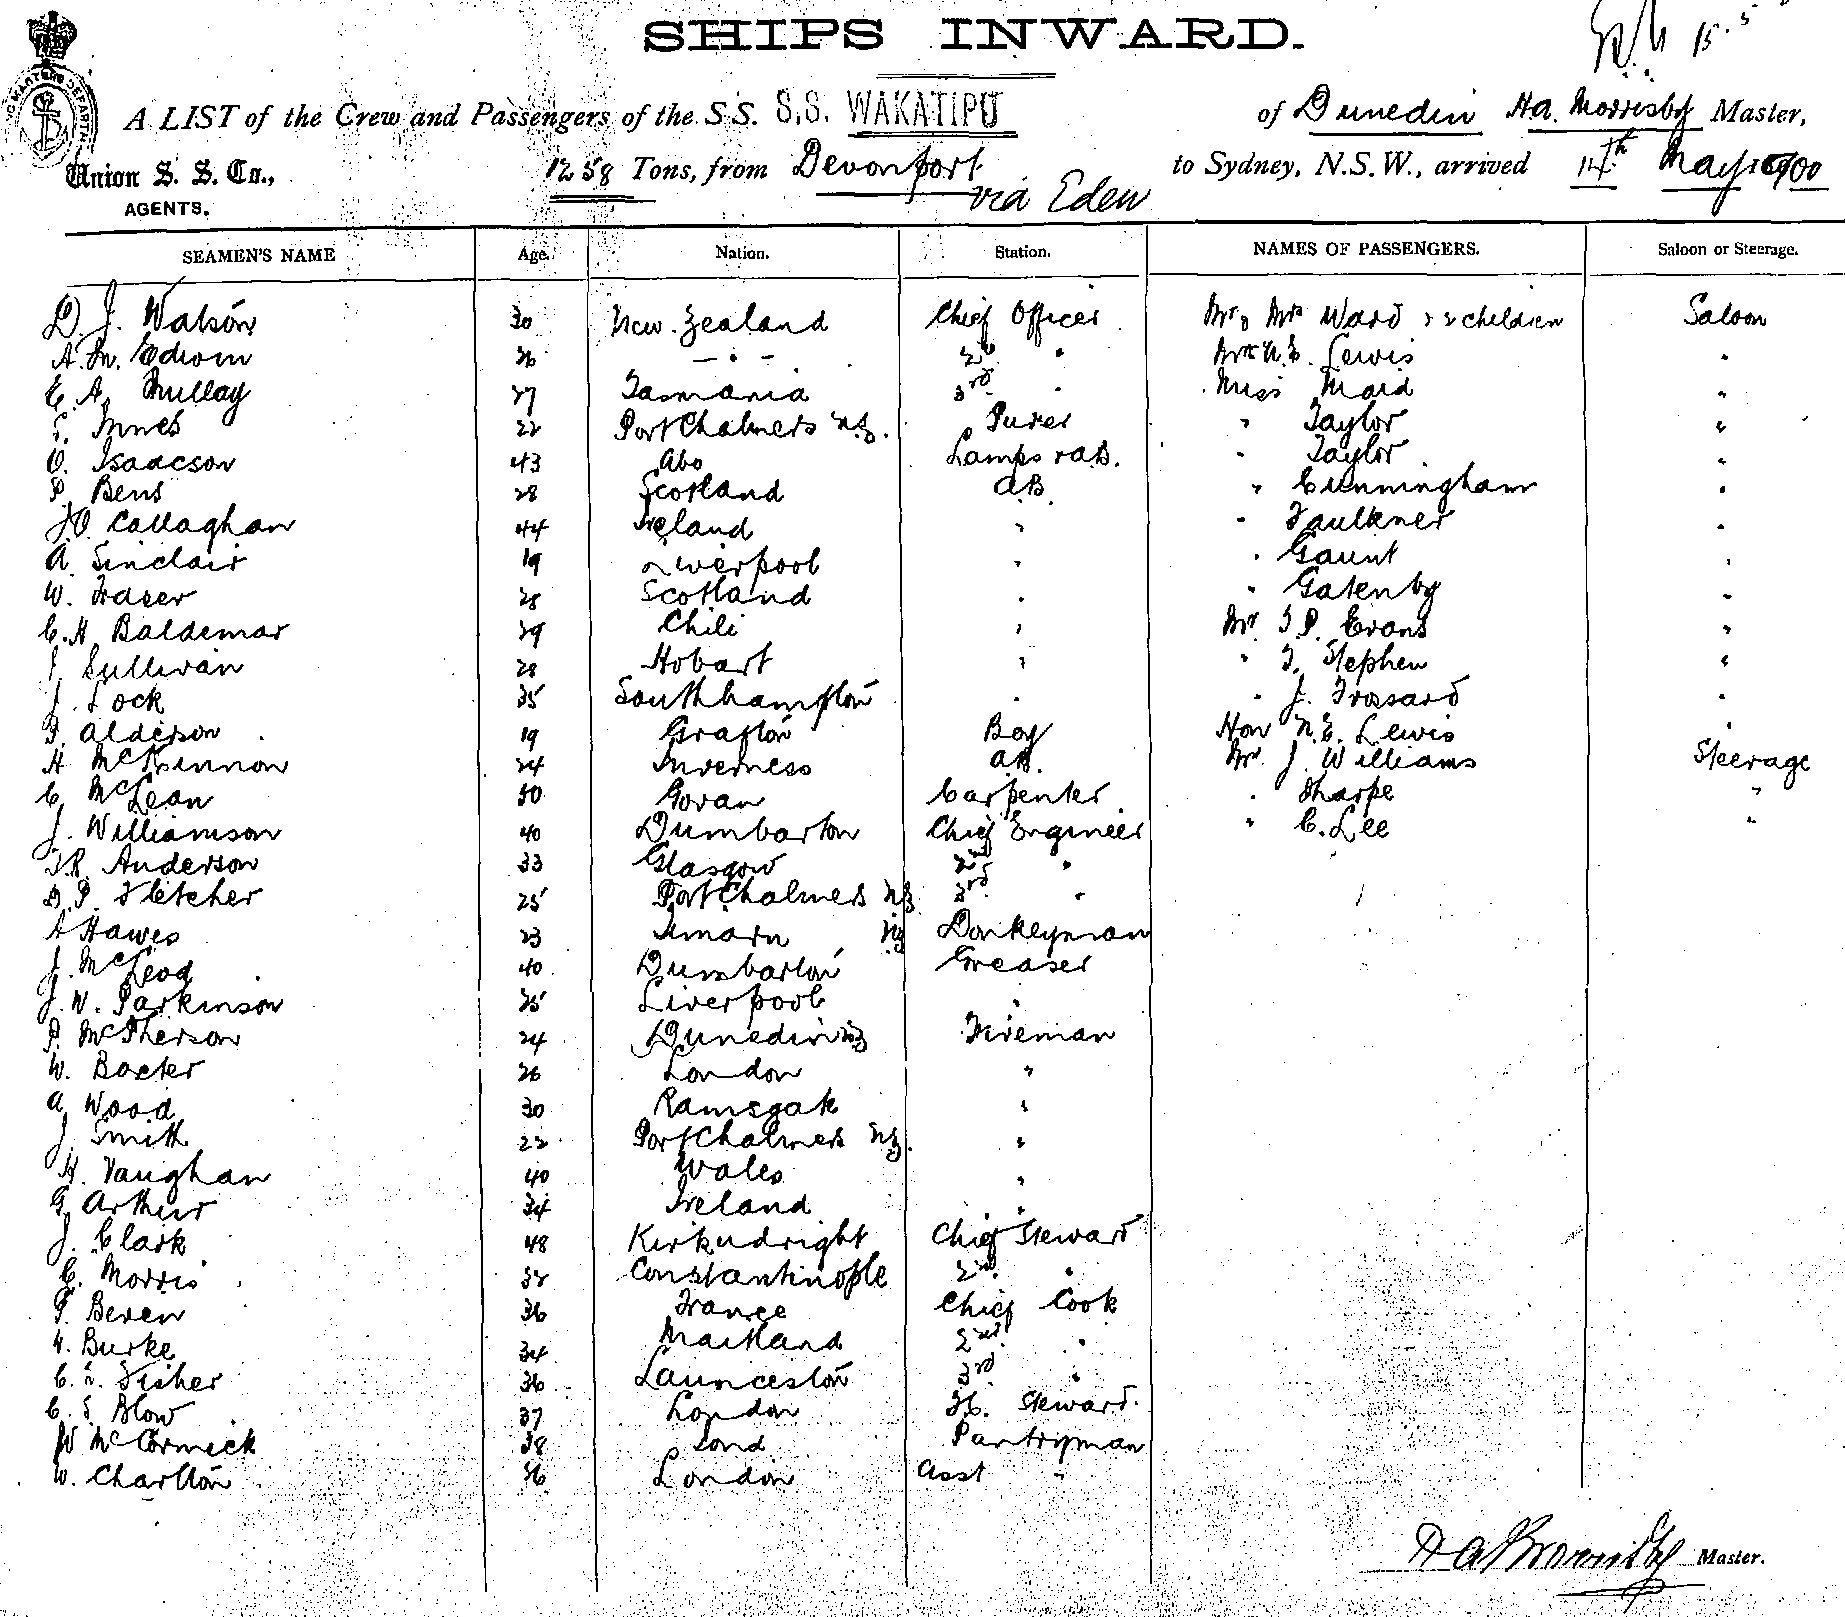 SHIPS INWARD.
15.5
A LIST of the Crew and Passengers of the S.S. S.S. WAKATIPU of Dunedin Ha. Morrisby Master,
Union S. S. Co., 1258 Tons, from Devonport to Sydney, N.S.W., arrived 14th May 1900
AGENTS. via Eden
SEAMEN'S NAME Age. Nation. Station. NAMES OF PASSENGERS. Saloon or Steerage.
D. J. Watson 30 New Zealand Chief Officer Mr & Mrs Ward & 2 children Saloon
A. M. Edwin 26 - " - 2nd " Mrs N. E. Lewis "
E. A. Mullay 27 Tasmania 3rd " Miss Maid "
S. Innes 22 Port Chalmers N.Z. Purer " Taylor "
O. Isaacson 43 Abo Lamps & AB. " Taylor "
P. Bens 28 Scotland AB " Cunningham "
J O. Callaghan 44 Ireland " " Faulkner "
A. Sinclair 19 Liverpool " " Gaunt "
W. Fraser 28 Scotland " " Gatenby "
C. H. Baldemar 29 Chili " Mr. T. P. Evans "
J. Sullivan 28 Hobart " " T. Stephen "
J. Lock 35 Southhampton " " J. Frossard "
F. Alderson 19 Grafton Boy Hon N. E. Lewis "
H McKinnon 24 Inverness AB. Mr. J. Williams Steerage
C. McLean 50 Govan Carpenter " Tharpe "
J. Williamson 40 Dumbarton Chief Engineer " C. Lee "
J. R. Anderson 33 Glasgow 2nd "
D. P. Fletcher 25 Port Chalmers NZ 3rd "
A Hawes 23 Timaru NZ Donkeyman
J. McLeod 40 Dumbarton Greaser
J. W. Parkinson 25 Liverpool "
P. McPherson 24 Dunedin NZ Fireman
W. Baxter 26 London "
A. Wood 30 Ramsgate "
J. Smith 22 Port Chalmers NZ. "
H. Vaughan 40 Wales "
G. Arthur 34 Ireland "
J. Clark 48 Kirkudright Chief Steward
C. Morris 32 Constantinople 2nd "
P. Beven 36 France Chief Cook
W. Burke 34 Maitland 2nd "
C. L. Fisher 36 Launceston 3rd "
C. S. Blow 37 London St. Steward.
W McCormick 38 Lond Pantryman
W. Charlton 36 London Asst "
Master.